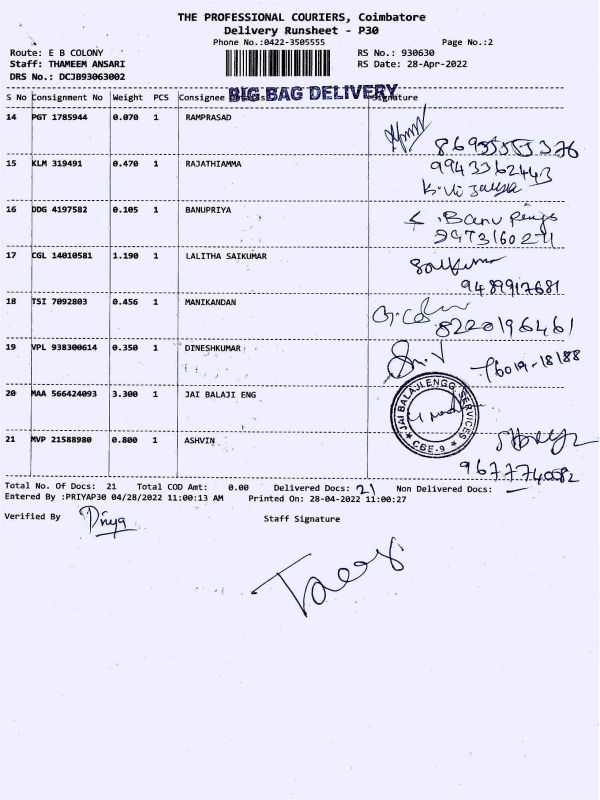 THE PROFESSIONAL COURIERS, Coimbatore
Delivery Runsheet - P30
Phone No.:0422-3505555 Page No.:2
Route: E B COLONY RS No.: 930630
Staff: THAMEEM ANSARI RS Date: 28-Apr-2022
DRS No.: DCJB93063002
BIG BAG DELIVERY
S No Consignment No Weight PCS Consignee Signature
14 PGT 1785944 0.070 1 RAMPRASAD
15 KLM 319491 0.470 1 RAJATHIAMMA
9943362443
16 DDG 4197582 0.105 1 BANUPRIYA
17 CGL 14010581 1.190 1 LALITHA SAIKUMAR
Saikumar
9489917681
18 TSI 7092803 0.456 1 MANIKANDAN
8220196461
19 VPL 938300614 0.350 1 DINESHKUMAR
20 MAA 566424093 3.300 1 JAI BALAJI ENG
JAI BALAJI ENGG SERVICES
CBE-9
21 MVP 21588980 0.800 1 ASHVIN
9677740082
Total No. Of Docs: 21 Total COD Amt: 0.00 Delivered Docs: 21 Non Delivered Docs: —
Entered By :PRIYAP30 04/28/2022 11:00:13 AM Printed On: 28-04-2022 11:00:27
Verified By Priya Staff Signature